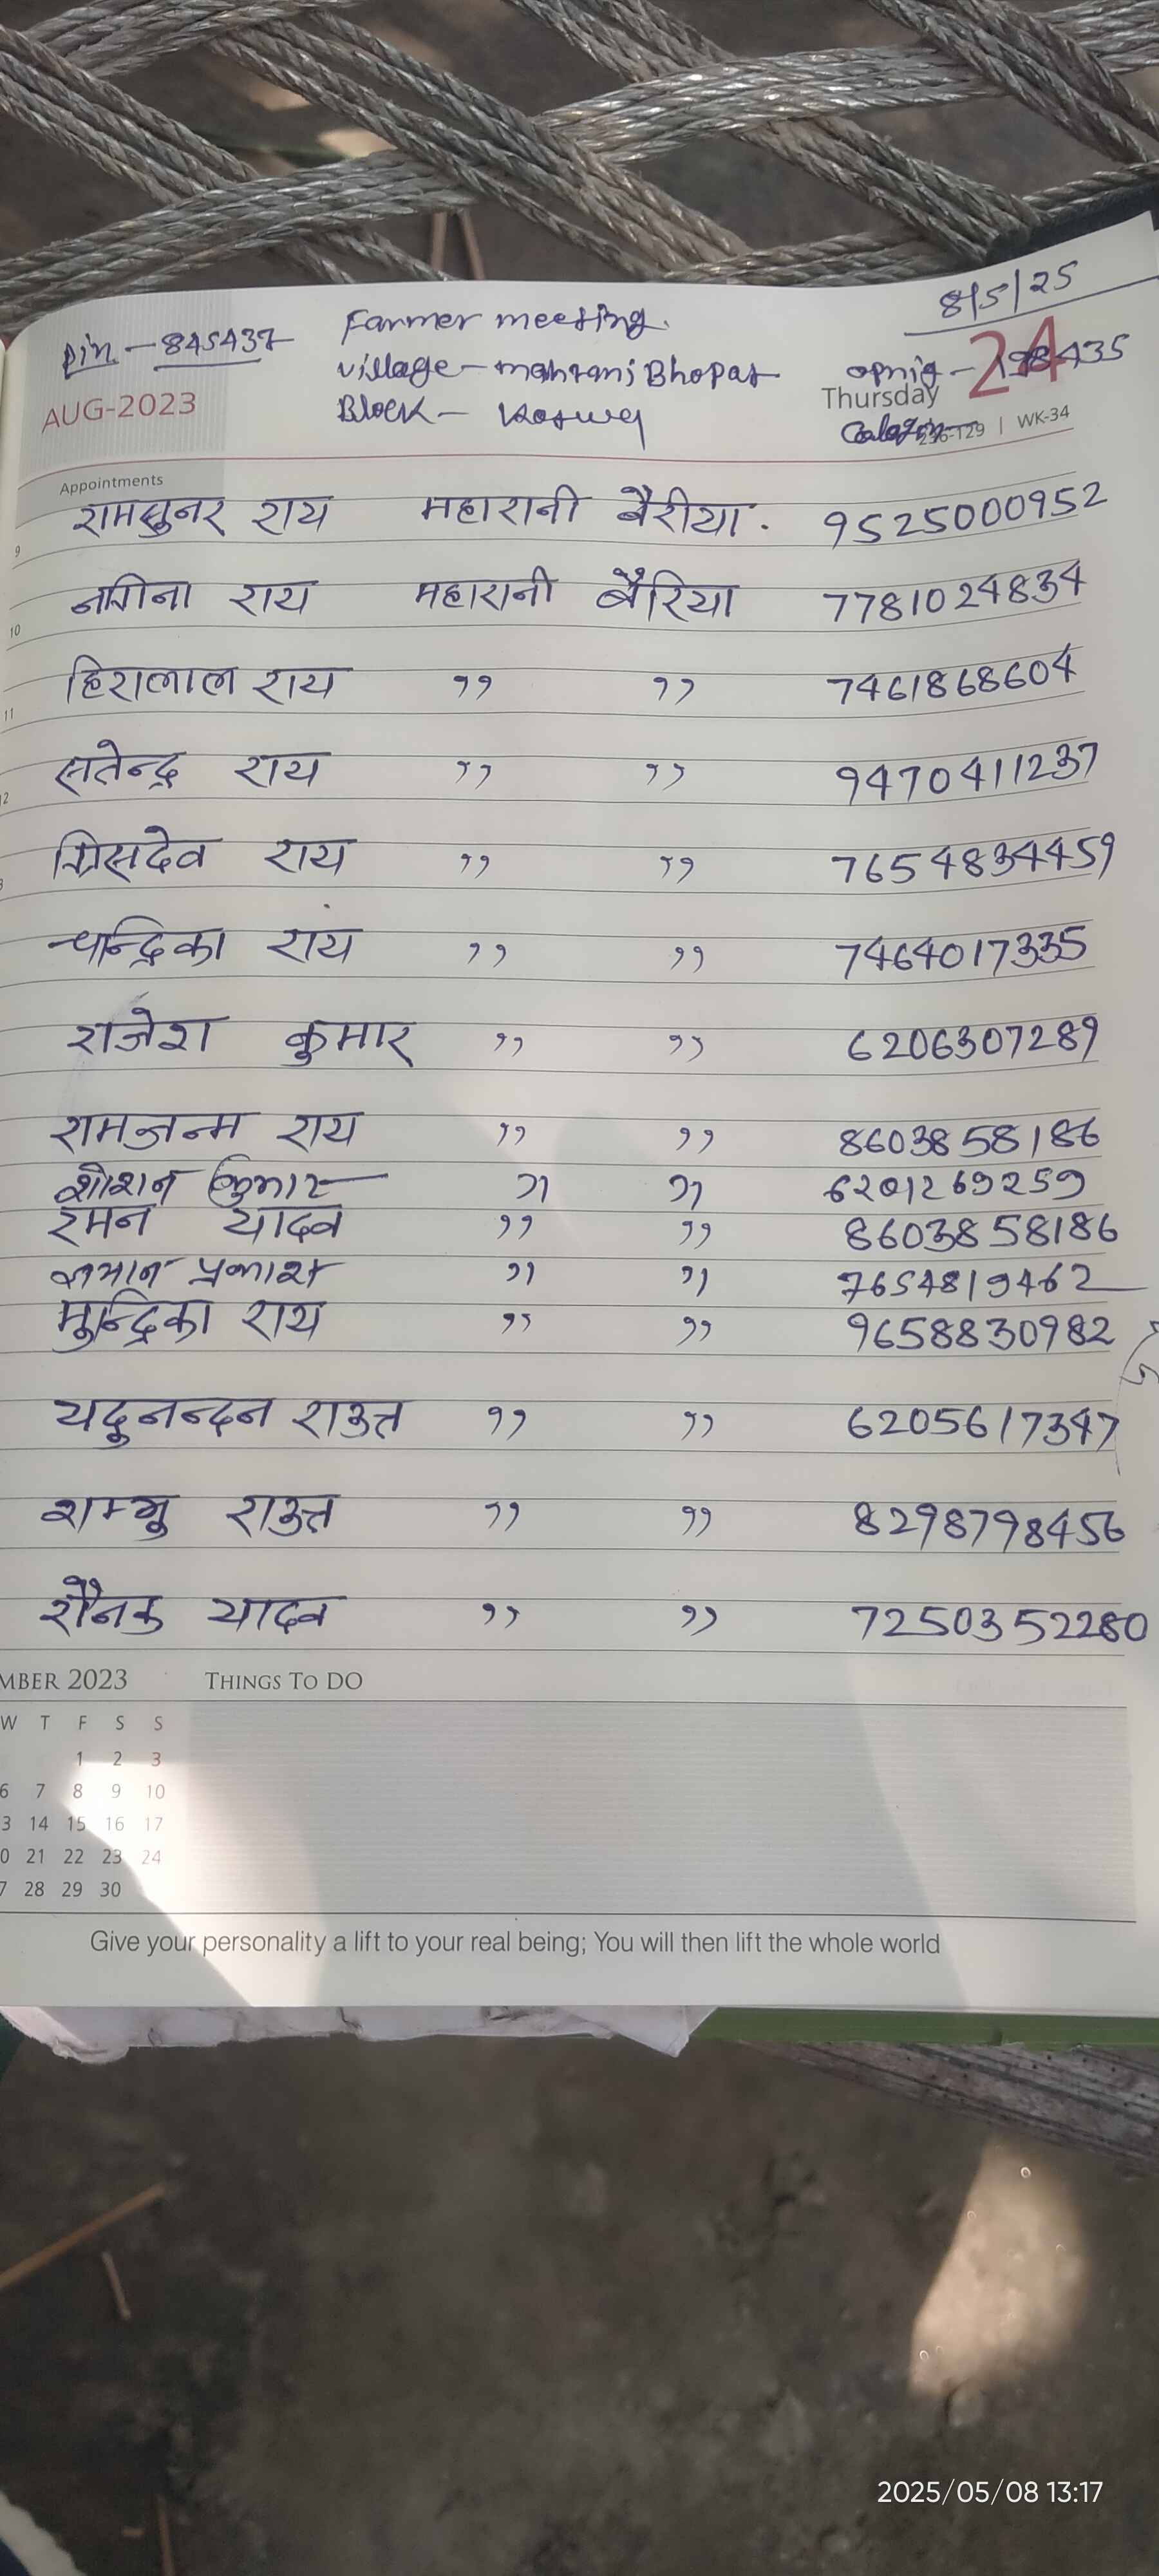 8/5/25
Pin - 845437 Farmer meeting.
village - mahrani Bhopat
AUG-2023 Block - Thursday 24
| WK-34
Appointments
राय महारानी बैरीया. 9525000952
9
नगिना राय महारानी बैरिया 7781024834
10
हिरालाल राय ,, ,, 7461868604
11
सतेन्द्र राय ,, ,, 9470411237
राय ,, ,, 7654834459
चान्द्रिका राय ,, ,, 7464017335
राजेश कुमार ,, ,, 6206307289
रामजन्म राय ,, ,, 8603858186
कुमार ,, ,, 6201269259
रमन यादव ,, ,, 8603858186
प्रकाश ,, ,, 7654819462
मुन्द्रिका राय ,, ,, 9658830982
यदुनन्दन राउत ,, ,, 6205617347
शम्भु राउत ,, ,, 8298798456
रौनक यादव ,, ,, 7250352280
MBER 2023 THINGS TO DO
W T F S S
1 2 3
6 7 8 9 10
3 14 15 16 17
0 21 22 23 24
7 28 29 30
Give your personality a lift to your real being; You will then lift the whole world
2025/05/08 13:17